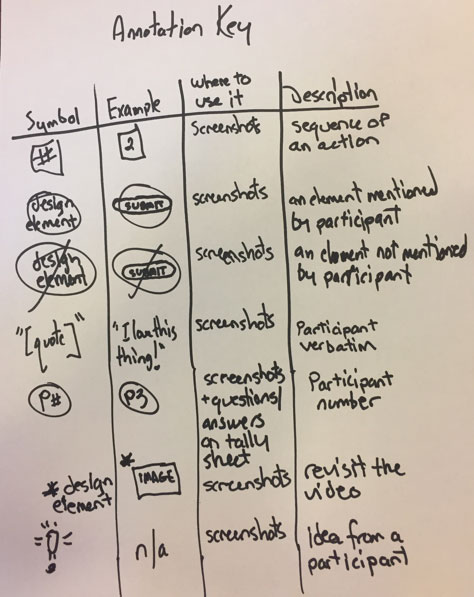 Annotation Key
Symbol Example Where to use it Description
# 2 screenshots sequence of an action
design element SUBMIT screenshots an element mentioned by participant
design element SUBMIT screenshots an element not mentioned by participant
"[quote]" "I love this thing!" screenshots Participant verbatim
P# P3 screenshots + questions/answers on tally sheet Participant number
* design element * IMAGE screenshots revisit the video
n/a screenshots Idea from a participant